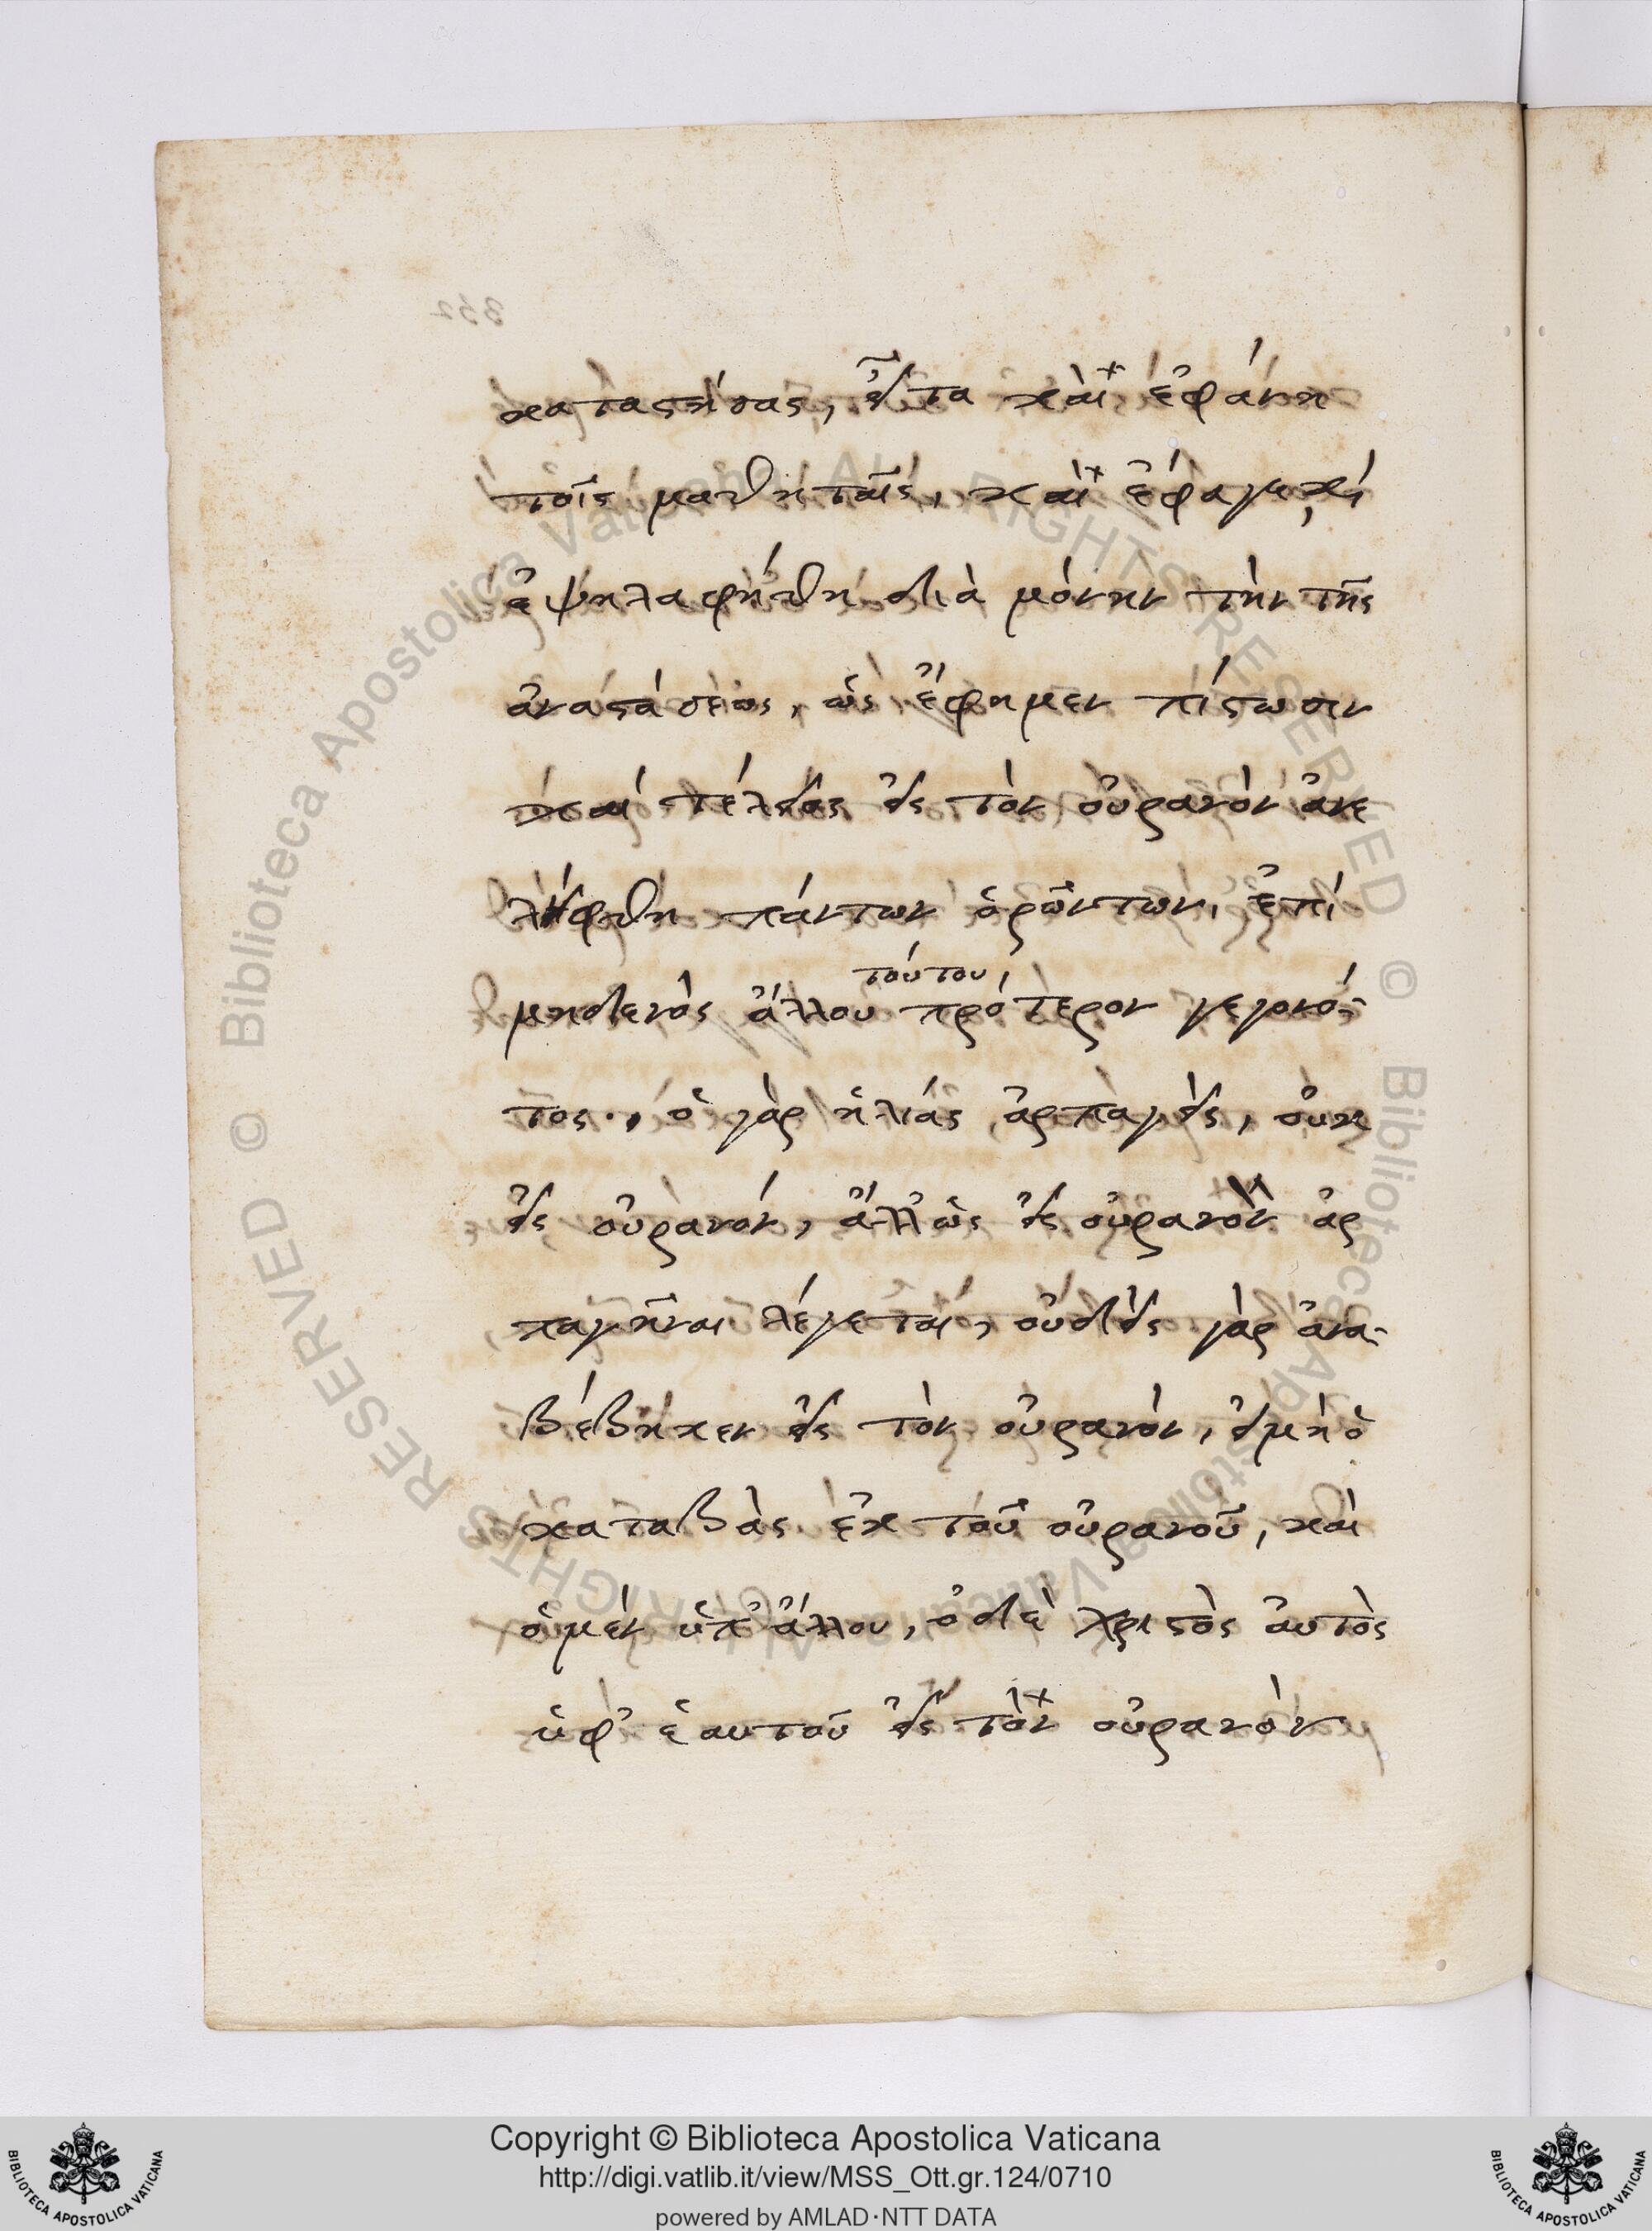 καταστήσας, εἶτα καὶ ἐφάνη
τοῖς μαθηταῖς, καὶ ἔφαγε, καὶ
ἐψηλαφήθη διὰ μόνην τὴν τῆς
ἀναστάσεως, ὡς ἔφημεν πίστωσιν
καὶ τέλειος εἰς τὸν οὐρανὸν ἀνε
λήφθη πάντων ὁρώντων, ἐπὶ
τούτου,
μηδενὸς ἄλλου πρότερον γεγονό-
τος., ὁ γὰρ ἡλίας ἁρπαγεὶς, οὐκ
εἰς οὐρανόν, ἀλλ' ὡς εἰς οὐρανὸν ἁρ
παγῆναι λέγεται, οὐδεὶς γὰρ ἀνα-
βέβηκεν εἰς τὸν οὐρανόν, εἰμὴ ὁ
καταβὰς ἐκ τοῦ οὐρανοῦ, καὶ
ὁ μὲν ὑπ' ἄλλου, ὁ δὲ χριστὸς αὐτὸς
ὑφ' ἑαυτοῦ εἰς τὸν οὐρανὸν
332
Biblioteca Apostolica Vaticana ALL RIGHTS RESERVED ©
Copyright © Biblioteca Apostolica Vaticana
http://digi.vatlib.it/view/MSS_Ott.gr.124/0710
powered by AMLAD·NTT DATA
BIBLIOTECA APOSTOLICA VATICANA
BIBLIOTECA APOSTOLICA VATICANA